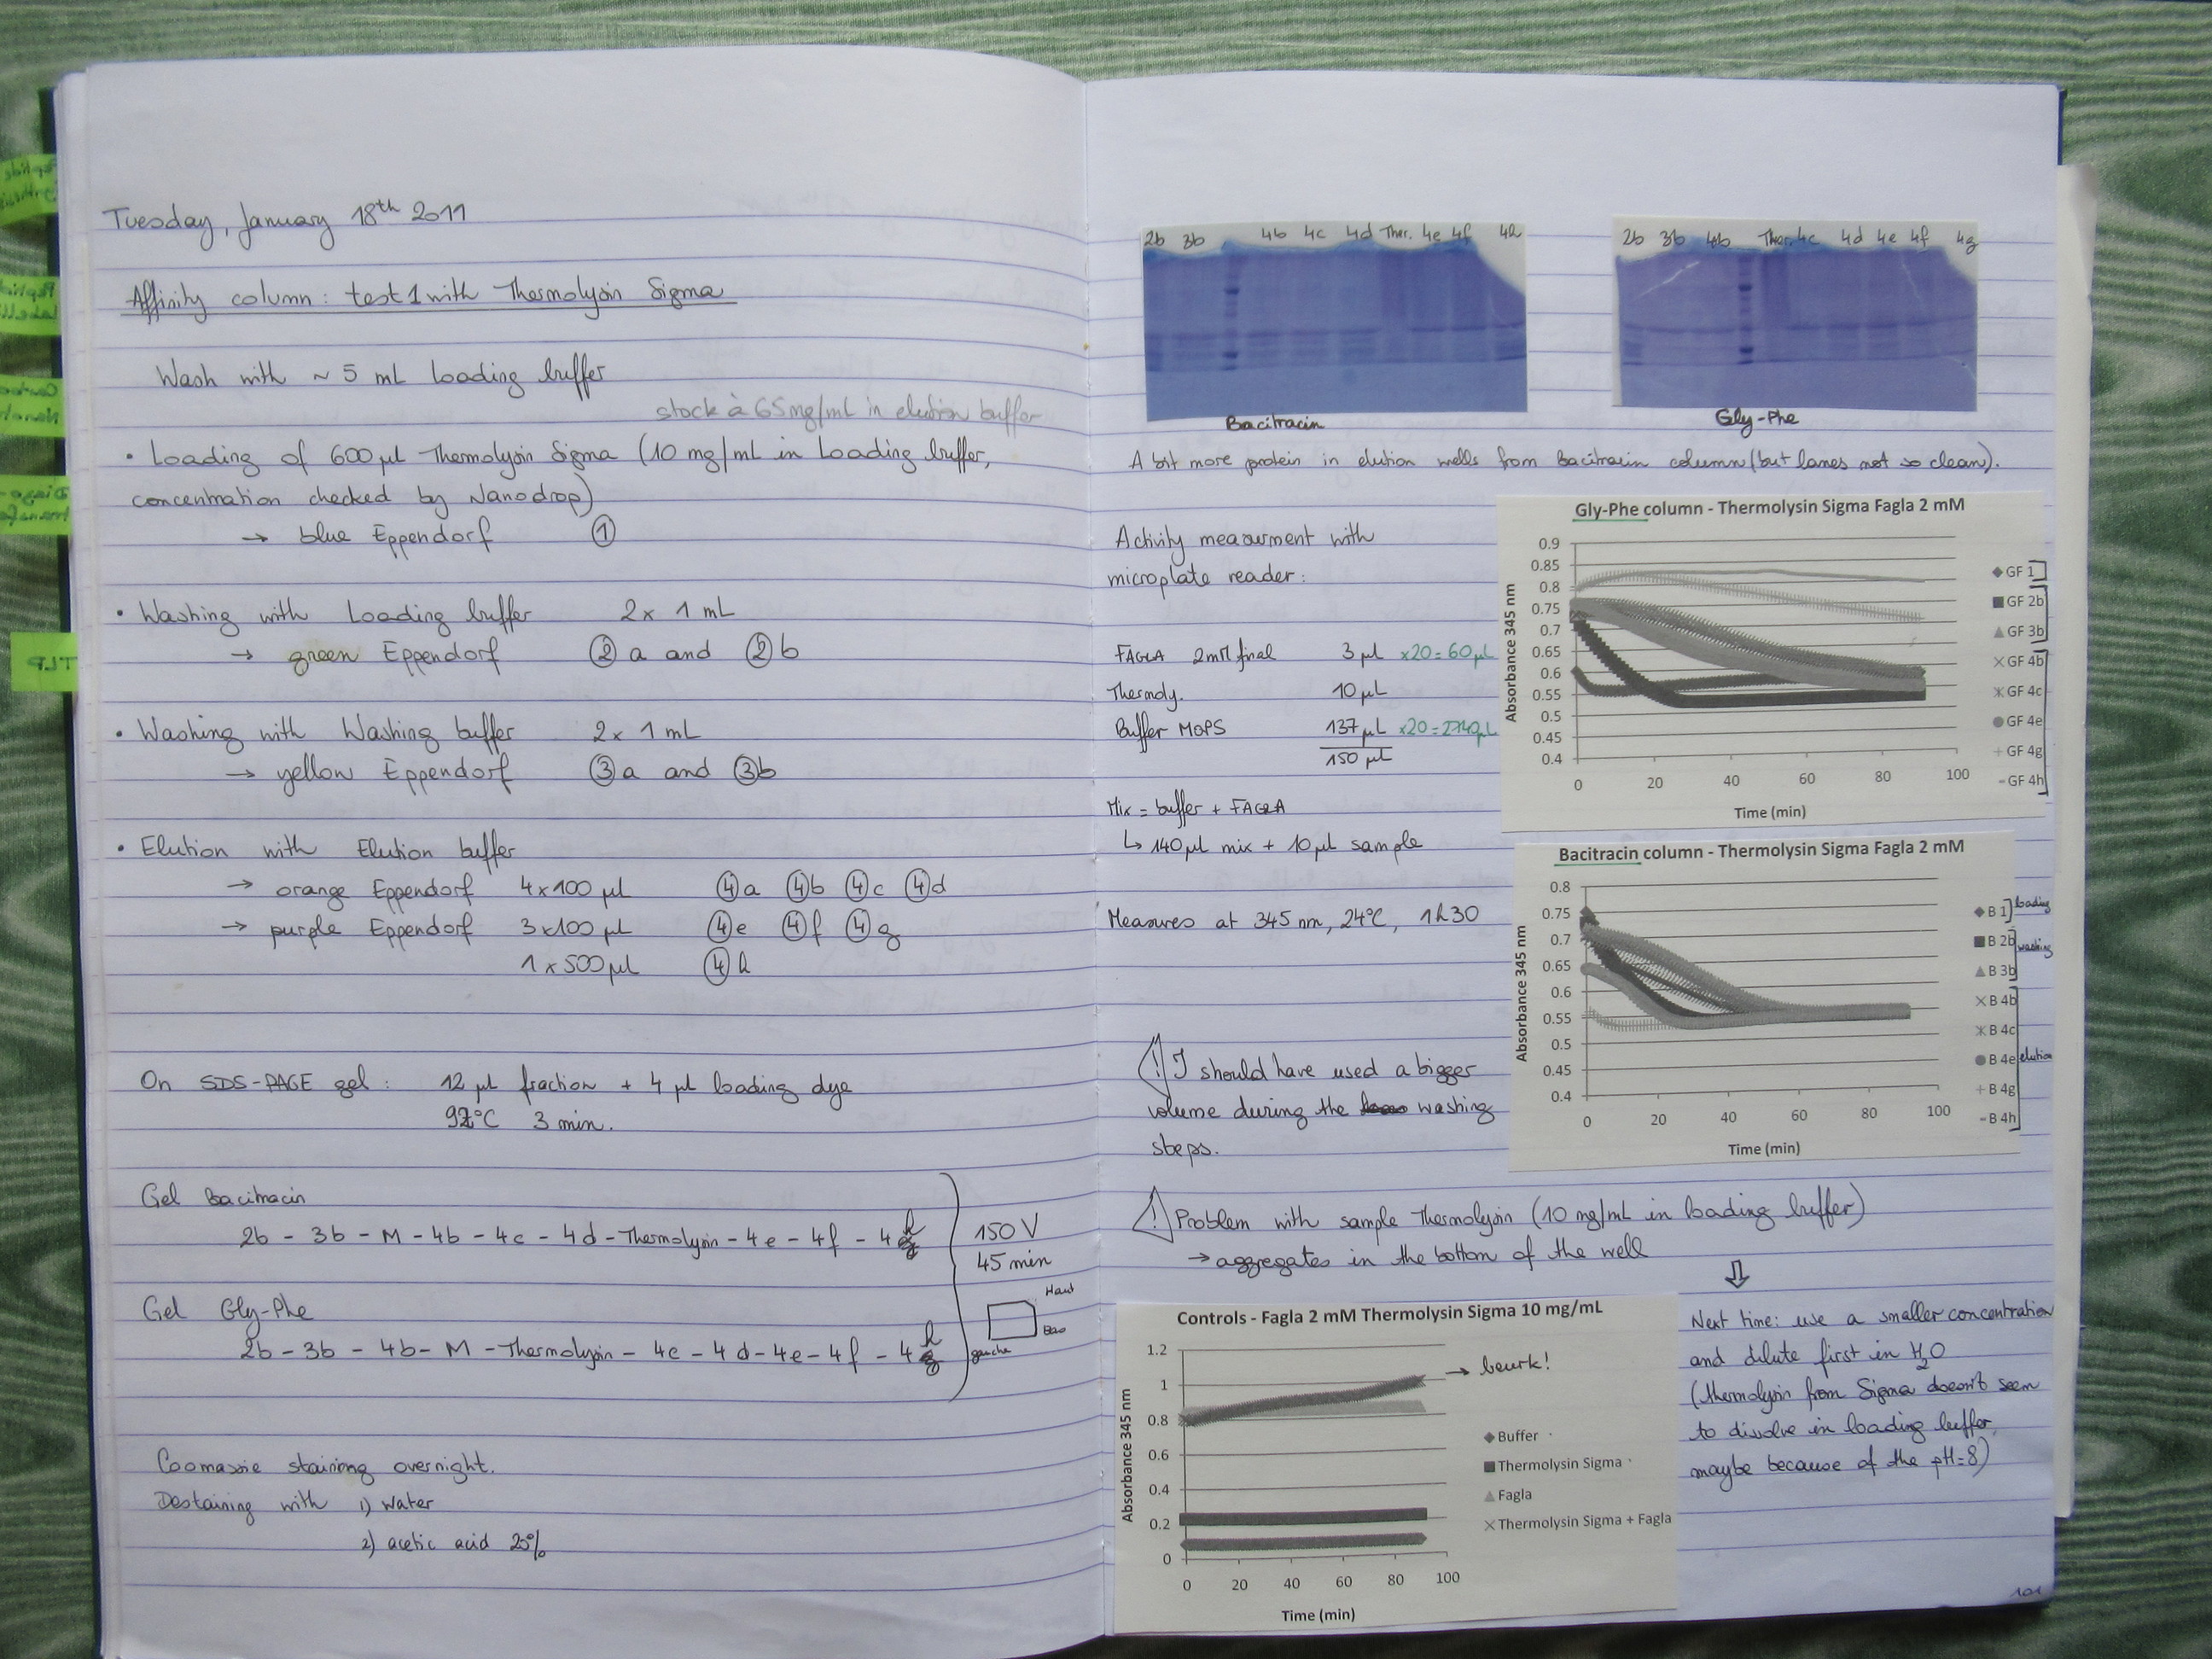 Tuesday, January 18th 2011
Affinity column : test 1 with Thermolysin Sigma
Wash with ~ 5 mL Loading buffer
stock à 65 mg/mL in elution buffer
• Loading of 600 µl Thermolysin Sigma (10 mg/mL in Loading buffer,
concentration checked by Nanodrop)
→ blue Eppendorf ①
• Washing with Loading buffer 2 x 1 mL
→ green Eppendorf ② a and ② b
• Washing with Washing buffer 2 x 1 mL
→ yellow Eppendorf ③ a and ③ b
• Elution with Elution buffer
→ orange Eppendorf 4 x 100 µl ④a ④b ④c ④d
→ purple Eppendorf 3 x 100 µl ④e ④f ④g
1 x 500 µl ④h
On SDS-PAGE gel : 12 µl fraction + 4 µl loading dye
92°C 3 min.
Gel Bacitracin
2b - 3b - M - 4b - 4c - 4d - Thermolysin - 4e - 4f - 4h
Gel Gly-Phe
2b - 3b - 4b - M - Thermolysin - 4c - 4d - 4e - 4f - 4h
150 V
45 min
Haut
Bas
gauche
Coomassie staining overnight.
Destaining with 1) water
2) acetic acid 25%
2b 3b 4b 4c 4d Ther. 4e 4f 4h
Bacitracin
2b 3b 4b Ther. 4c 4d 4e 4f 4g
Gly-Phe
A bit more protein in elution wells from Bacitracin column (but lanes not so clean).
Activity measurment with
microplate reader :
FAGLA 2mM final 3 µl x20 = 60 µL
Thermoly. 10 µL
Buffer MOPS 137 µL x20 = 2740 µL
150 µL
Mix = buffer + FAGLA
↳ 140 µl mix + 10 µl sample
Measures at 345 nm, 24°C, 1h30
Gly-Phe column - Thermolysin Sigma Fagla 2 mM
Absorbance 345 nm
0.9
0.85
0.8
0.75
0.7
0.65
0.6
0.55
0.5
0.45
0.4
0 20 40 60 80 100
Time (min)
GF 1
GF 2b
GF 3b
GF 4b
GF 4c
GF 4e
GF 4g
GF 4h
Bacitracin column - Thermolysin Sigma Fagla 2 mM
Absorbance 345 nm
0.8
0.75
0.7
0.65
0.6
0.55
0.5
0.45
0.4
0 20 40 60 80 100
Time (min)
B 1 loading
B 2b washing
B 3b
B 4b
B 4c
B 4e elution
B 4g
B 4h
! I should have used a bigger
volume during the washing
steps.
! Problem with sample Thermolysin (10 mg/mL in loading buffer)
→ aggregates in the bottom of the well
⇩
Next time : use a smaller concentration
and dilute first in H2O
(thermolysin from Sigma doesn't seem
to disolve in loading buffer,
maybe because of the pH=8)
Controls - Fagla 2 mM Thermolysin Sigma 10 mg/mL
Absorbance 345 nm
1.2
1
0.8
0.6
0.4
0.2
0
0 20 40 60 80 100
Time (min)
→ beurk!
Buffer
Thermolysin Sigma
Fagla
Thermolysin Sigma + Fagla
101
TLP